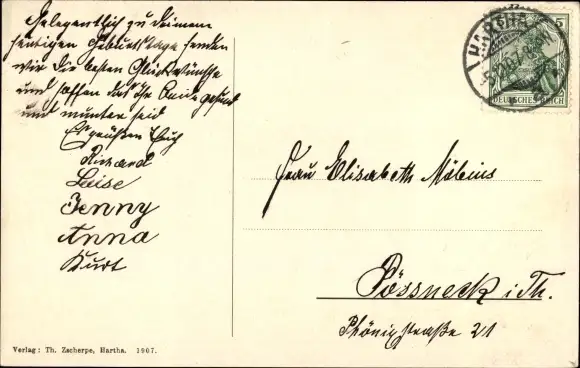 Gelegentlich zu deinem
heutigen Geburtstage senden
wir die besten Glückwünsche
und hoffen das ihr beide gesund
und munter seid
Es grüßen Euch
Richard
Luise
Jenny
Anna
Kurt
HARTHA
5
DEUTSCHES REICH
Frau Elisabeth Möbius
Pössneck i. Th.
Phönigstraße 21
Verlag: Th. Zscherpe, Hartha. 1907.